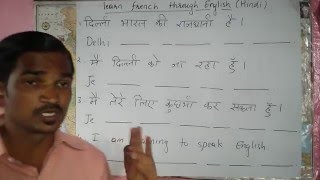 learn french through English (Hindi)
1. दिल्ली भारत की राजधानी है।
Delhi
2. मैं दिल्ली को जा रहा हूँ।
Je
3. मैं तेरे लिए कुछभी कर सकता हूँ।
Je
I am to speak English.